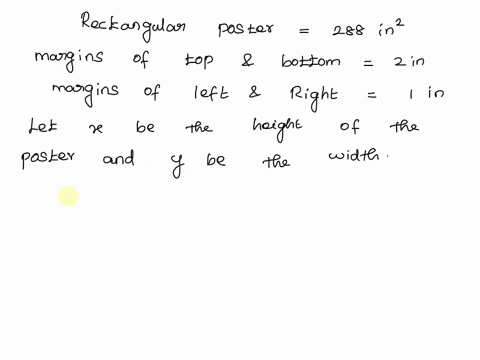 Rectangular poster = 288 in²
margins of top & bottom = 2 in
margins of left & Right = 1 in
Let x be the height of the
poster and y be the width.